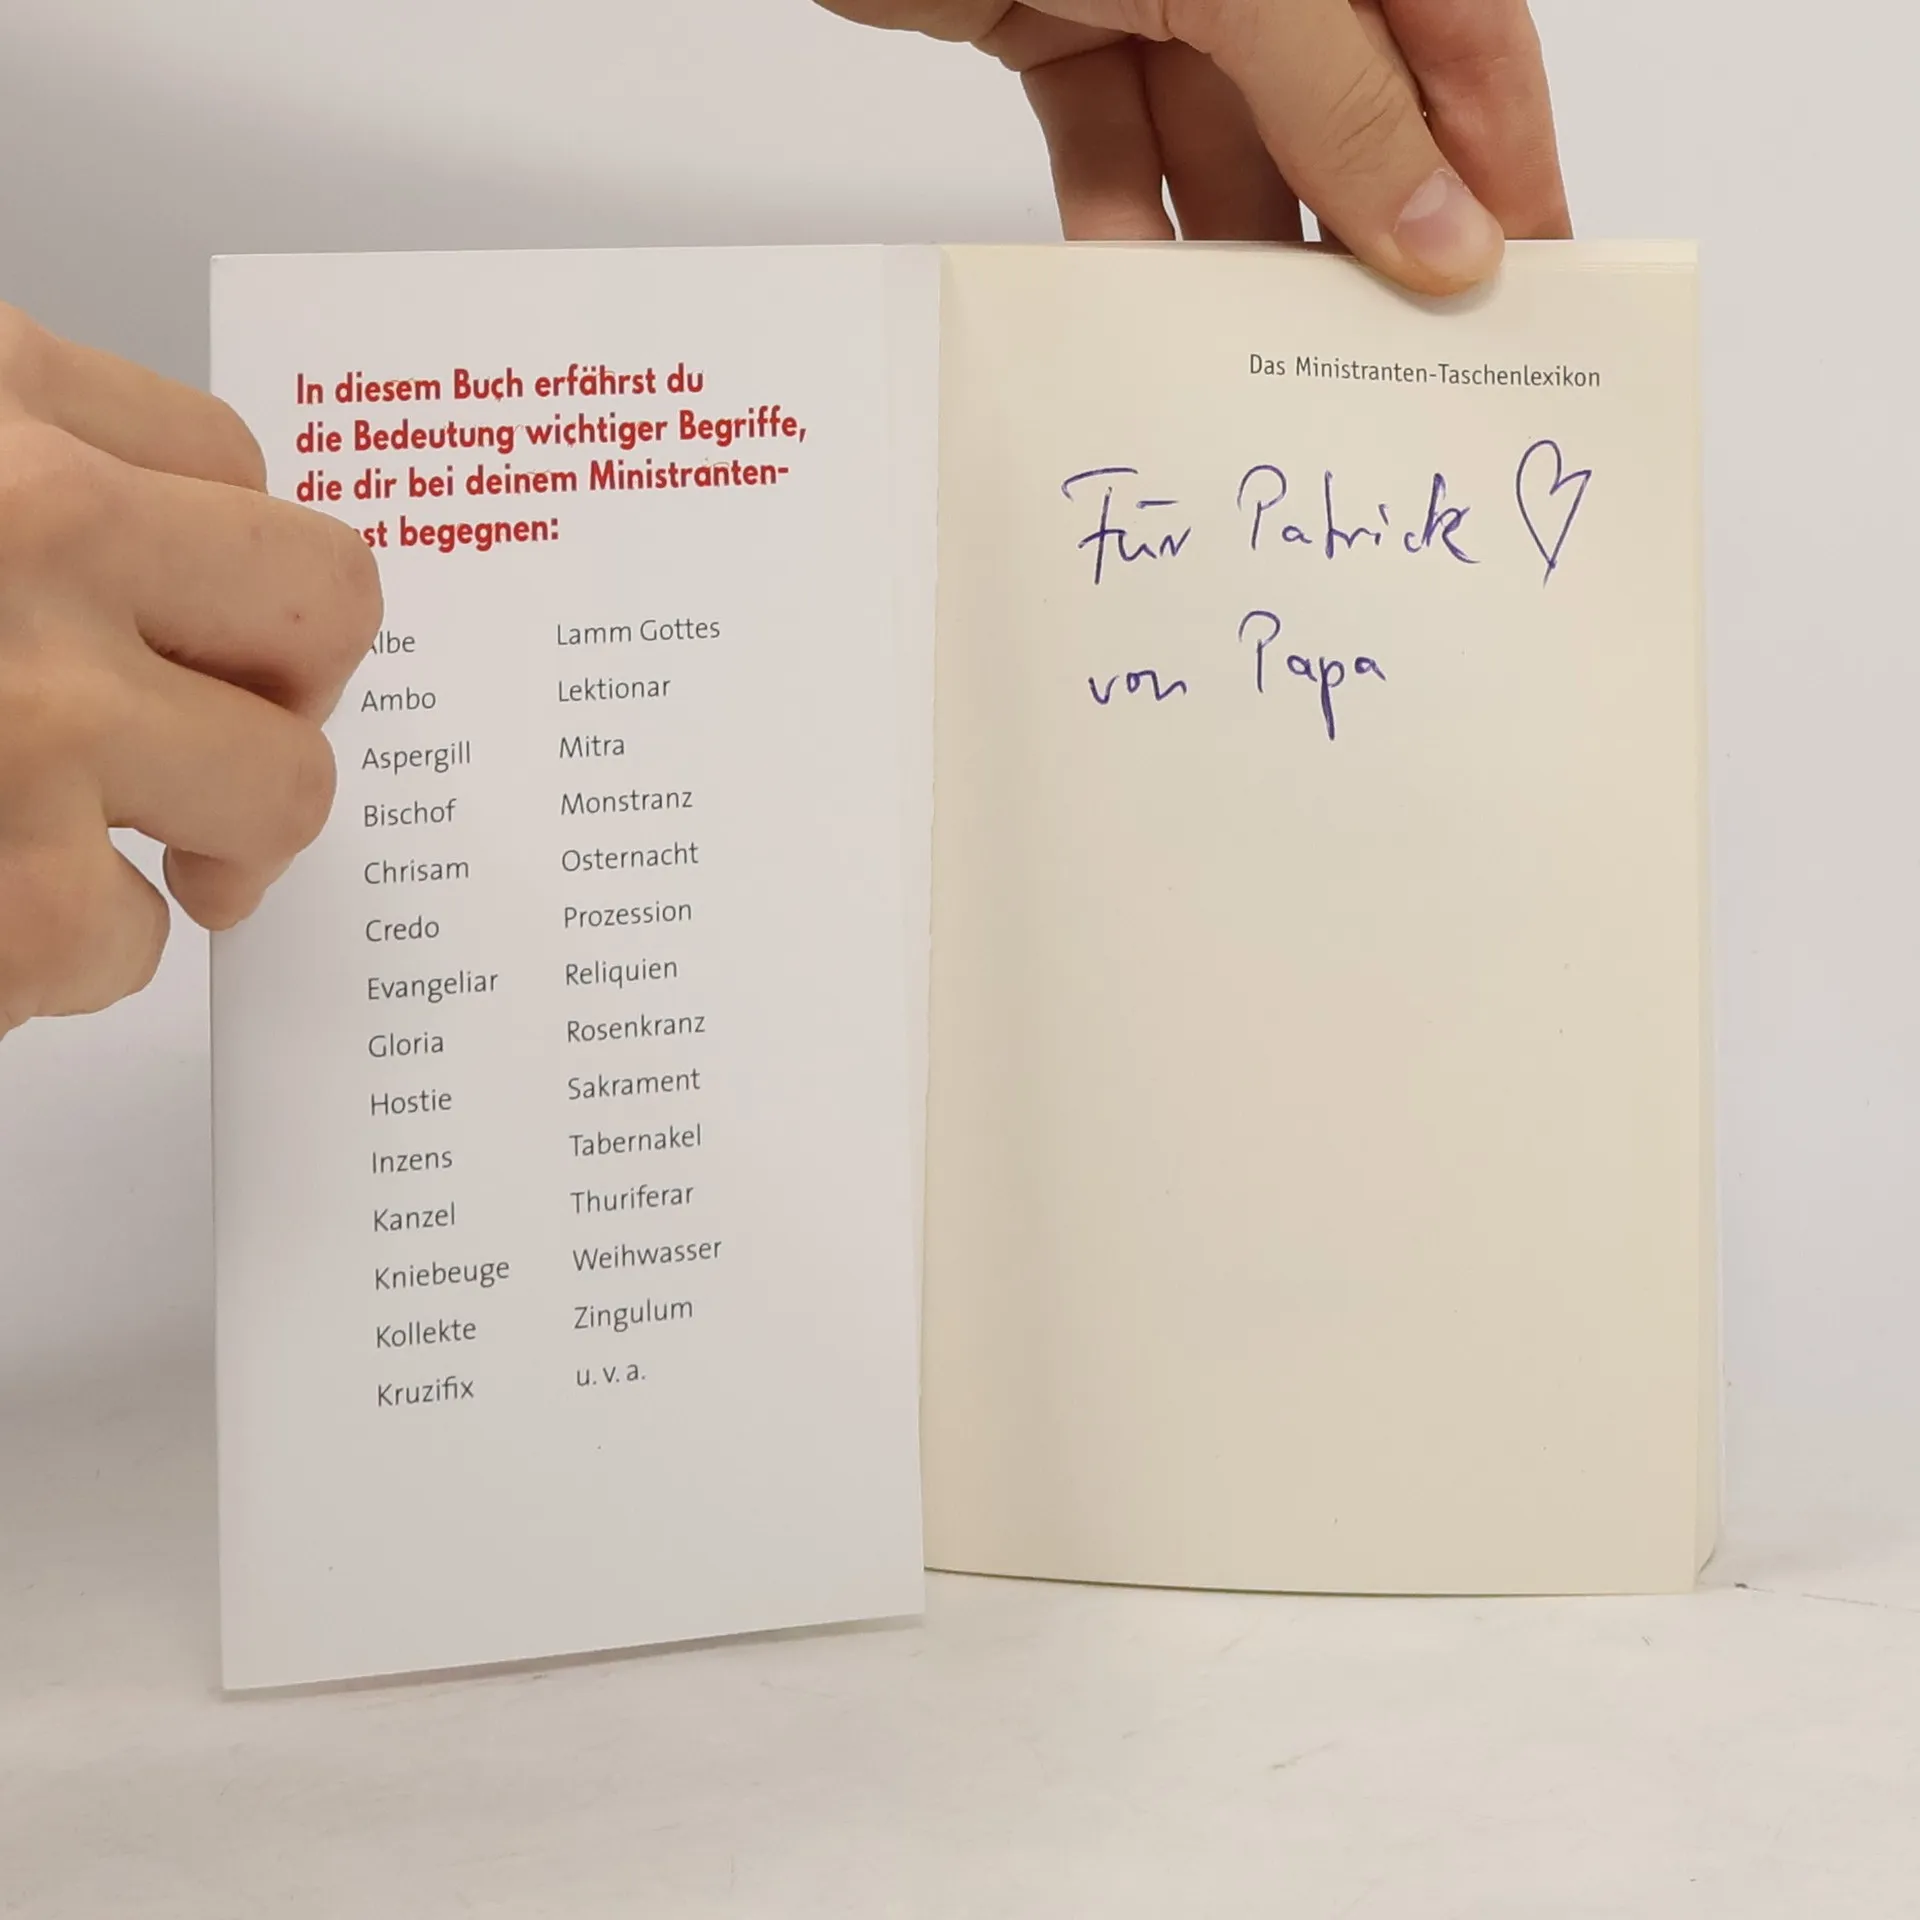 In diesem Buch erfährst du
die Bedeutung wichtiger Begriffe,
die dir bei deinem Ministranten-
begegnen:
Albe
Ambo
Aspergill
Bischof
Chrisam
Credo
Evangeliar
Gloria
Hostie
Inzens
Kanzel
Kniebeuge
Kollekte
Kruzifix
Lamm Gottes
Lektionar
Mitra
Monstranz
Osternacht
Prozession
Reliquien
Rosenkranz
Sakrament
Tabernakel
Thuriferar
Weihwasser
Zingulum
u. v. a.
Das Ministranten-Taschenlexikon
Für Patrick ♡
von Papa